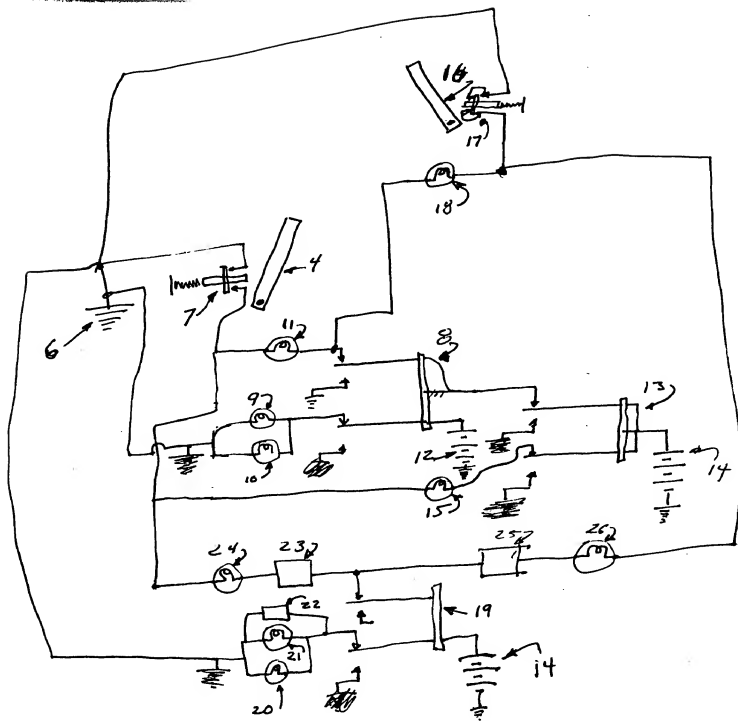 16
17
18
4
7
6
11
8
9
13
10
12
14
15
24
23
25
26
22
19
21
20
14